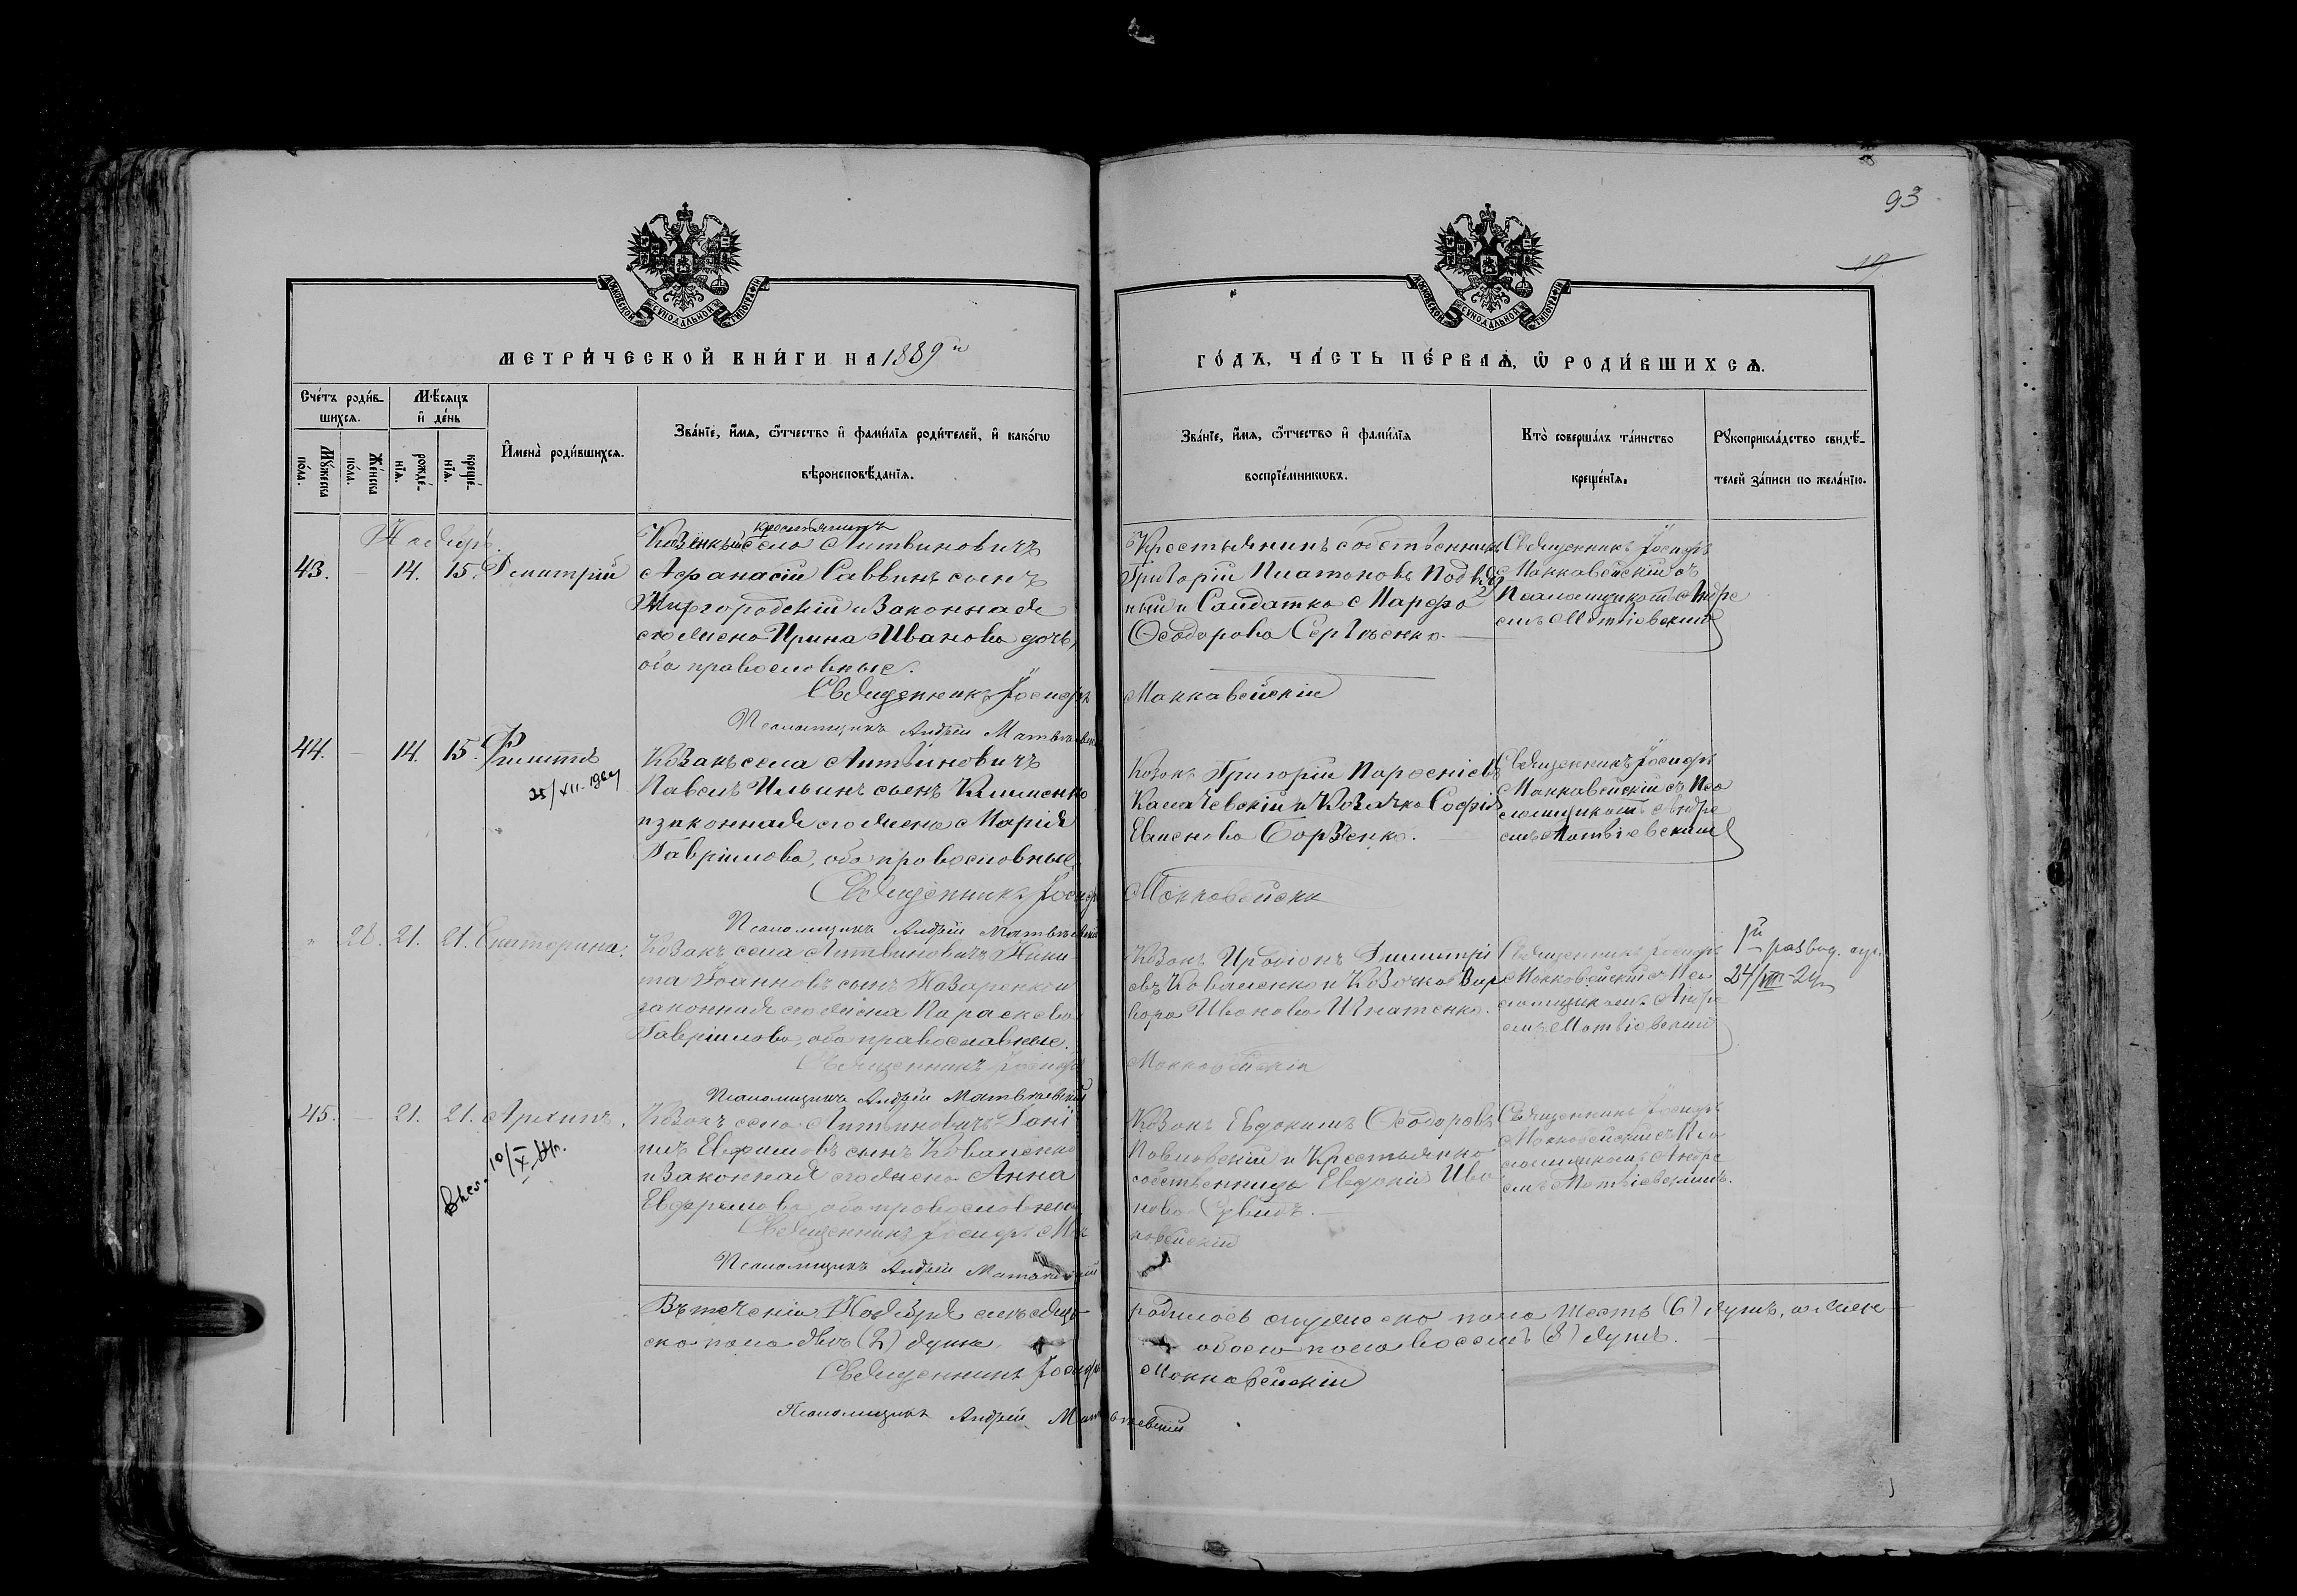 93
19
МОСКОВСКОЙ СУНОДАЛЬНОЙ ТИПОГРАФІИ
МОСКОВСКОЙ СУНОДАЛЬНОЙ ТИПОГРАФІИ
МЕТРИ́ЧЕСКОЙ КНИ́ГИ НА 1889й
ГО́ДЪ, ЧА́СТЬ ПЕ́РВАѦ, Ѡ РОДИ́ВШИХСѦ.
Сче́тъ роди́в-
шихсѧ.
Му́жеска по́ла.
Же́нска по́ла.
Мѣ́сѧцъ
и де́нь
рожде́-нїѧ.
креще́-нїѧ.
Имена̀ роди́вшихсѧ.
Зва́нїе, и́мѧ, ѻ́тчество и фами́лїѧ роди́телей, и како́гѡ
вѣроисповѣ́данїѧ.
Зва́нїе, и́мѧ, ѻ́тчество и фами́лїѧ
воспрїе́мникѡвъ.
Кто̀ соверша́лъ та́инство
креще́нїѧ.
Рꙋкоприкла́дство свидѣ́-
телей за́писи по жела́нїю.
Ноябрь.
43. — 14. 15. Димитрій
крестьянинъ
села Литвиновичъ
Афанасій Саввинъ сынъ
Миргородскій и законная
его жена Ирина Иванова дочь,
оба православные.
Священникъ Іосифъ Маккавейскій
Псаломщикъ Андрей Матвѣевскій
Крестьянинъ собственникъ
Григорій Платоновъ
и Солдатка Марфа
Ѳеодорова Сергѣенко.
Священникъ Іосифъ
Маккавейскій съ
Псаломщикомъ Андре
емъ Матвіевскимъ
44. — 14. 15. Филиппъ
25/XII-
Козакъ села Литвиновичъ
Павелъ Ильинъ сынъ Клименко
и законная его жена Марія
Гавріилова, оба православные
Священникъ Іосифъ Маккавейскій
Псаломщикъ Андрей Матвѣевскій
Козакъ Григорій
Калачевскій и Козачка Софія
Борзенко.
Священникъ Іосифъ
Маккавейскій съ Пса
ломщикомъ Андре
емъ Матвіевскимъ
" 28. 21. 21. Екатерина.
Козакъ села Литвиновичъ Ники
та Іоанновъ сынъ Назаренко и
законная его жена Параскева
Гавріилова, оба православные.
Священникъ Іосифъ Маккавейскій
Псаломщикъ Андрей Матвѣевскій
Козакъ Иродіонъ Димитрі
евъ Коваленко и Козачка Вар
вара Иванова Игнатенко.
Священникъ Іосифъ
Маккавейскій съ Пса
ломщикомъ Андре
емъ Матвіевскимъ
1й развод.
24/VIII-24
45. — 21. 21. Архипъ.
10/X
Козакъ села Литвиновичъ Дані
илъ Евфимовъ сынъ Коваленко
и законная его жена Анна
Евфремова, оба православные
Священникъ Іосифъ Маккавейскій
Псаломщикъ Андрей Матвѣевскій
Козакъ Евдокимъ Ѳеодоровъ
Павловскій и Крестьянка
собственница Евдокія Ива
нова
Священникъ Іосифъ
Маккавейскій съ Пса
ломщикомъ Андре
емъ Матвіевскимъ.
Въ теченіи Ноября мѣсяца родилось мужеска пола шесть (6) душъ, а жен
ска пола двѣ (2) души, обоего пола восемь (8) душъ.
Священникъ Іосифъ Маккавейскій
Псаломщикъ Андрей Матвѣевскій